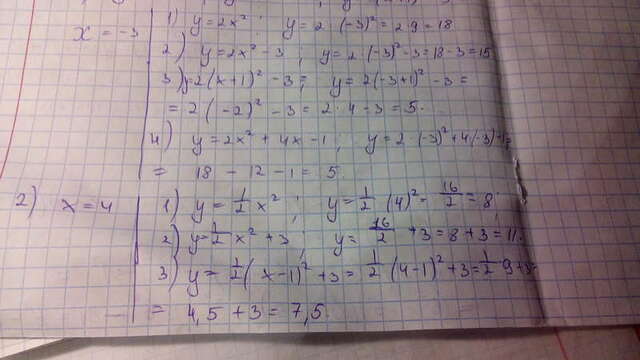 x = -3
1) y = 2x² ; y = 2 · (-3)² = 2·9 = 18
2) y = 2x² - 3 ; y = 2·(-3)² - 3 = 18 - 3 = 15
3) y = 2(x+1)² - 3 = ; y = 2(-3+1)² - 3 =
= 2(-2)² - 3 = 2·4 - 3 = 5.
4) y = 2x² + 4x - 1 ; y = 2·(-3)² + 4(-3) - 1 =
= 18 - 12 - 1 = 5.
2) x = 4
1) y = 1/2 x² ; y = 1/2 (4)² = 16/2 = 8
2) y = 1/2 x² + 3 , y = 16/2 + 3 = 8 + 3 = 11.
3) y = 1/2 (x-1)² + 3 = 1/2 (4-1)² + 3 = 1/2 9 + 3 =
= 4,5 + 3 = 7,5.